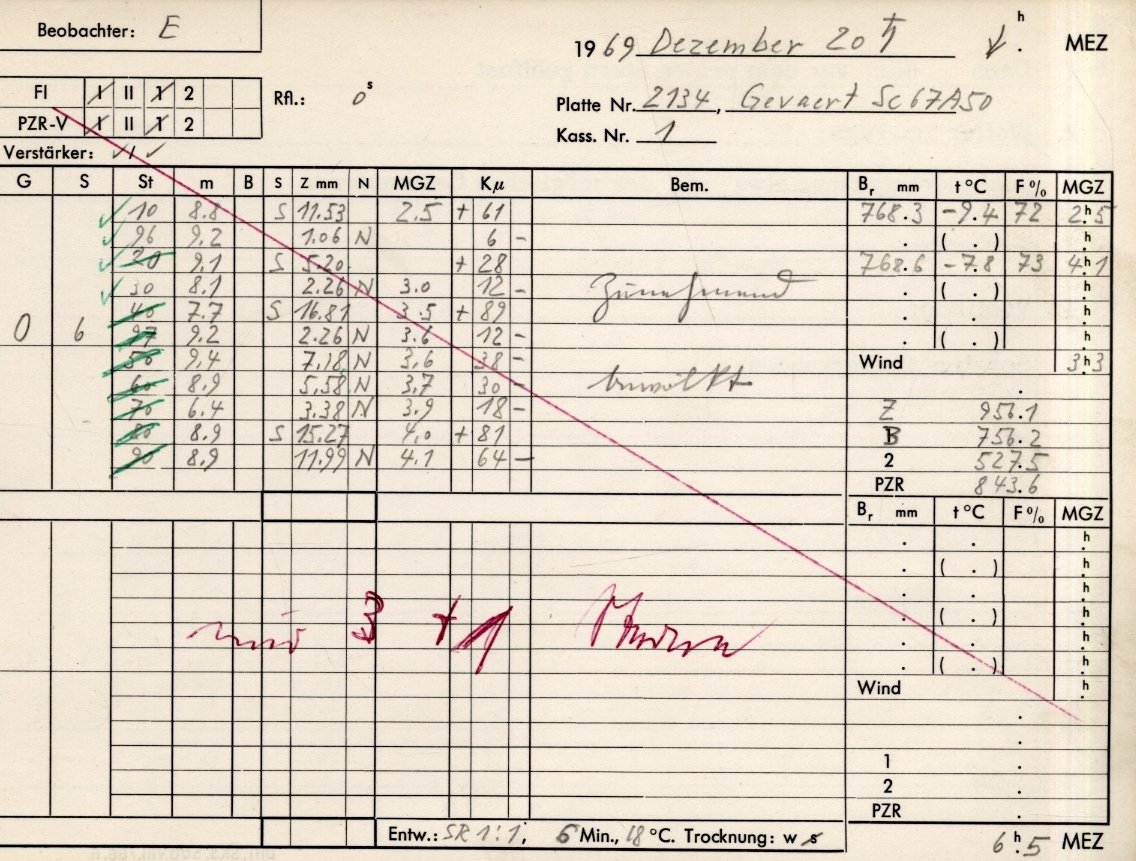 Beobachter: E
1969 Dezember 20 h. MEZ
FI I II 1 2
PZR-V I II 1 2
Rfl.: 0s
Platte Nr. 2134, Gevaert Sc67A50
Kass. Nr. 1
Verstärker: √ / √
G S St m B S Z mm N MGZ Kμ Bem. Br mm t °C F % MGZ
10 8.8 S 11.53 2.5 + 61 768.3 -9.4 72 2h.5
96 9.2 1.06 N 6 - . ( . ) h.
20 9.1 S 5.20 + 28 768.6 -7.8 73 4h.1
30 8.1 2.26 N 3.0 12 - Zunehmend . ( . ) h.
40 7.7 S 16.81 3.5 + 89 . . h.
0 6 97 9.2 2.26 N 3.6 12 - . ( . ) h.
50 9.4 7.18 N 3.6 38 - Wind 3h.3
60 8.9 5.58 N 3.7 30 - bewölkt .
70 6.4 3.38 N 3.9 18 - Z 956.1
80 8.9 S 15.27 4.0 + 81 B 756.2
90 8.9 11.99 N 4.1 64 - 2 527.5
PZR 843.6
Br mm t °C F % MGZ
. . h.
. ( . ) h.
. . h.
nur 3 + 1 Sterne . ( . ) h.
. . h.
. ( . ) h.
Wind h.
.
.
1 .
2 .
PZR .
Entw.: SR 1:1, 6 Min., 18 °C. Trocknung: w s 6h.5 MEZ